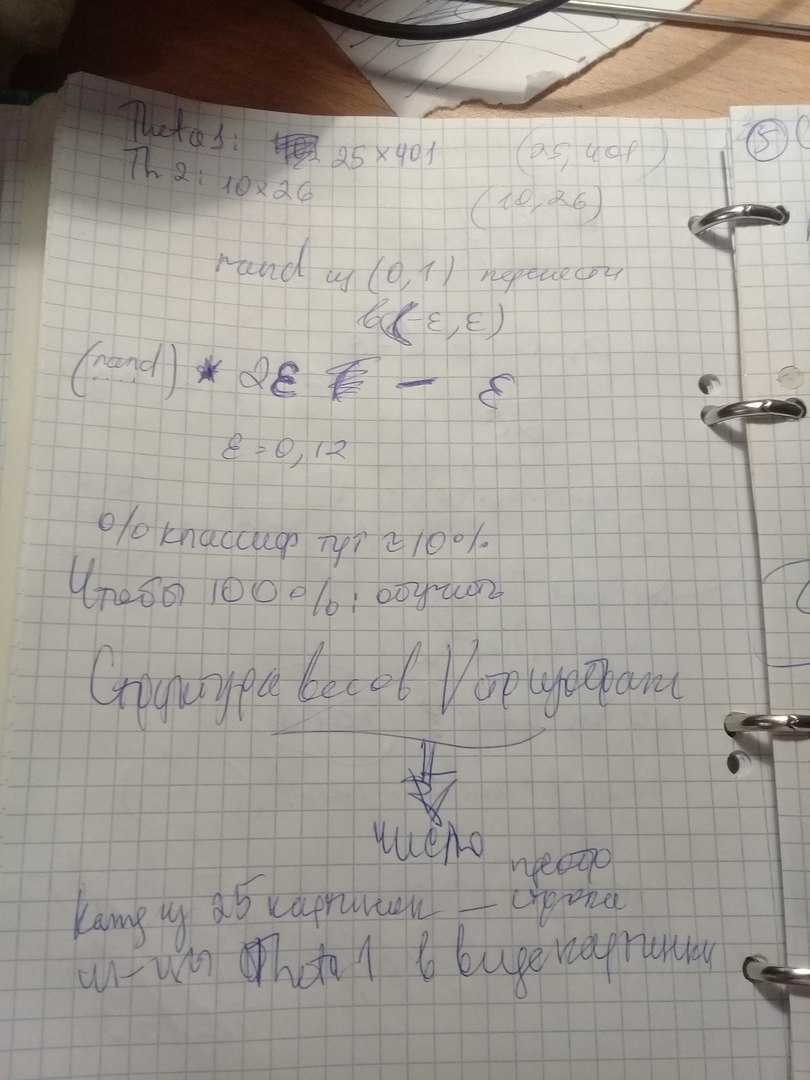 Theta1: 25×401 (25, 401)
Th 2: 10×26 (10, 26)
rand из (0,1) перенести
в (-ε, ε)
(rand) * 2ε - ε
ε = 0,12
% классиф тут ≈ 10%
Чтобы 100%: обучить
Структура весов
число
преобр
Кажд из 25 картинок — строка
м-цы Theta 1 в виде картинки
5